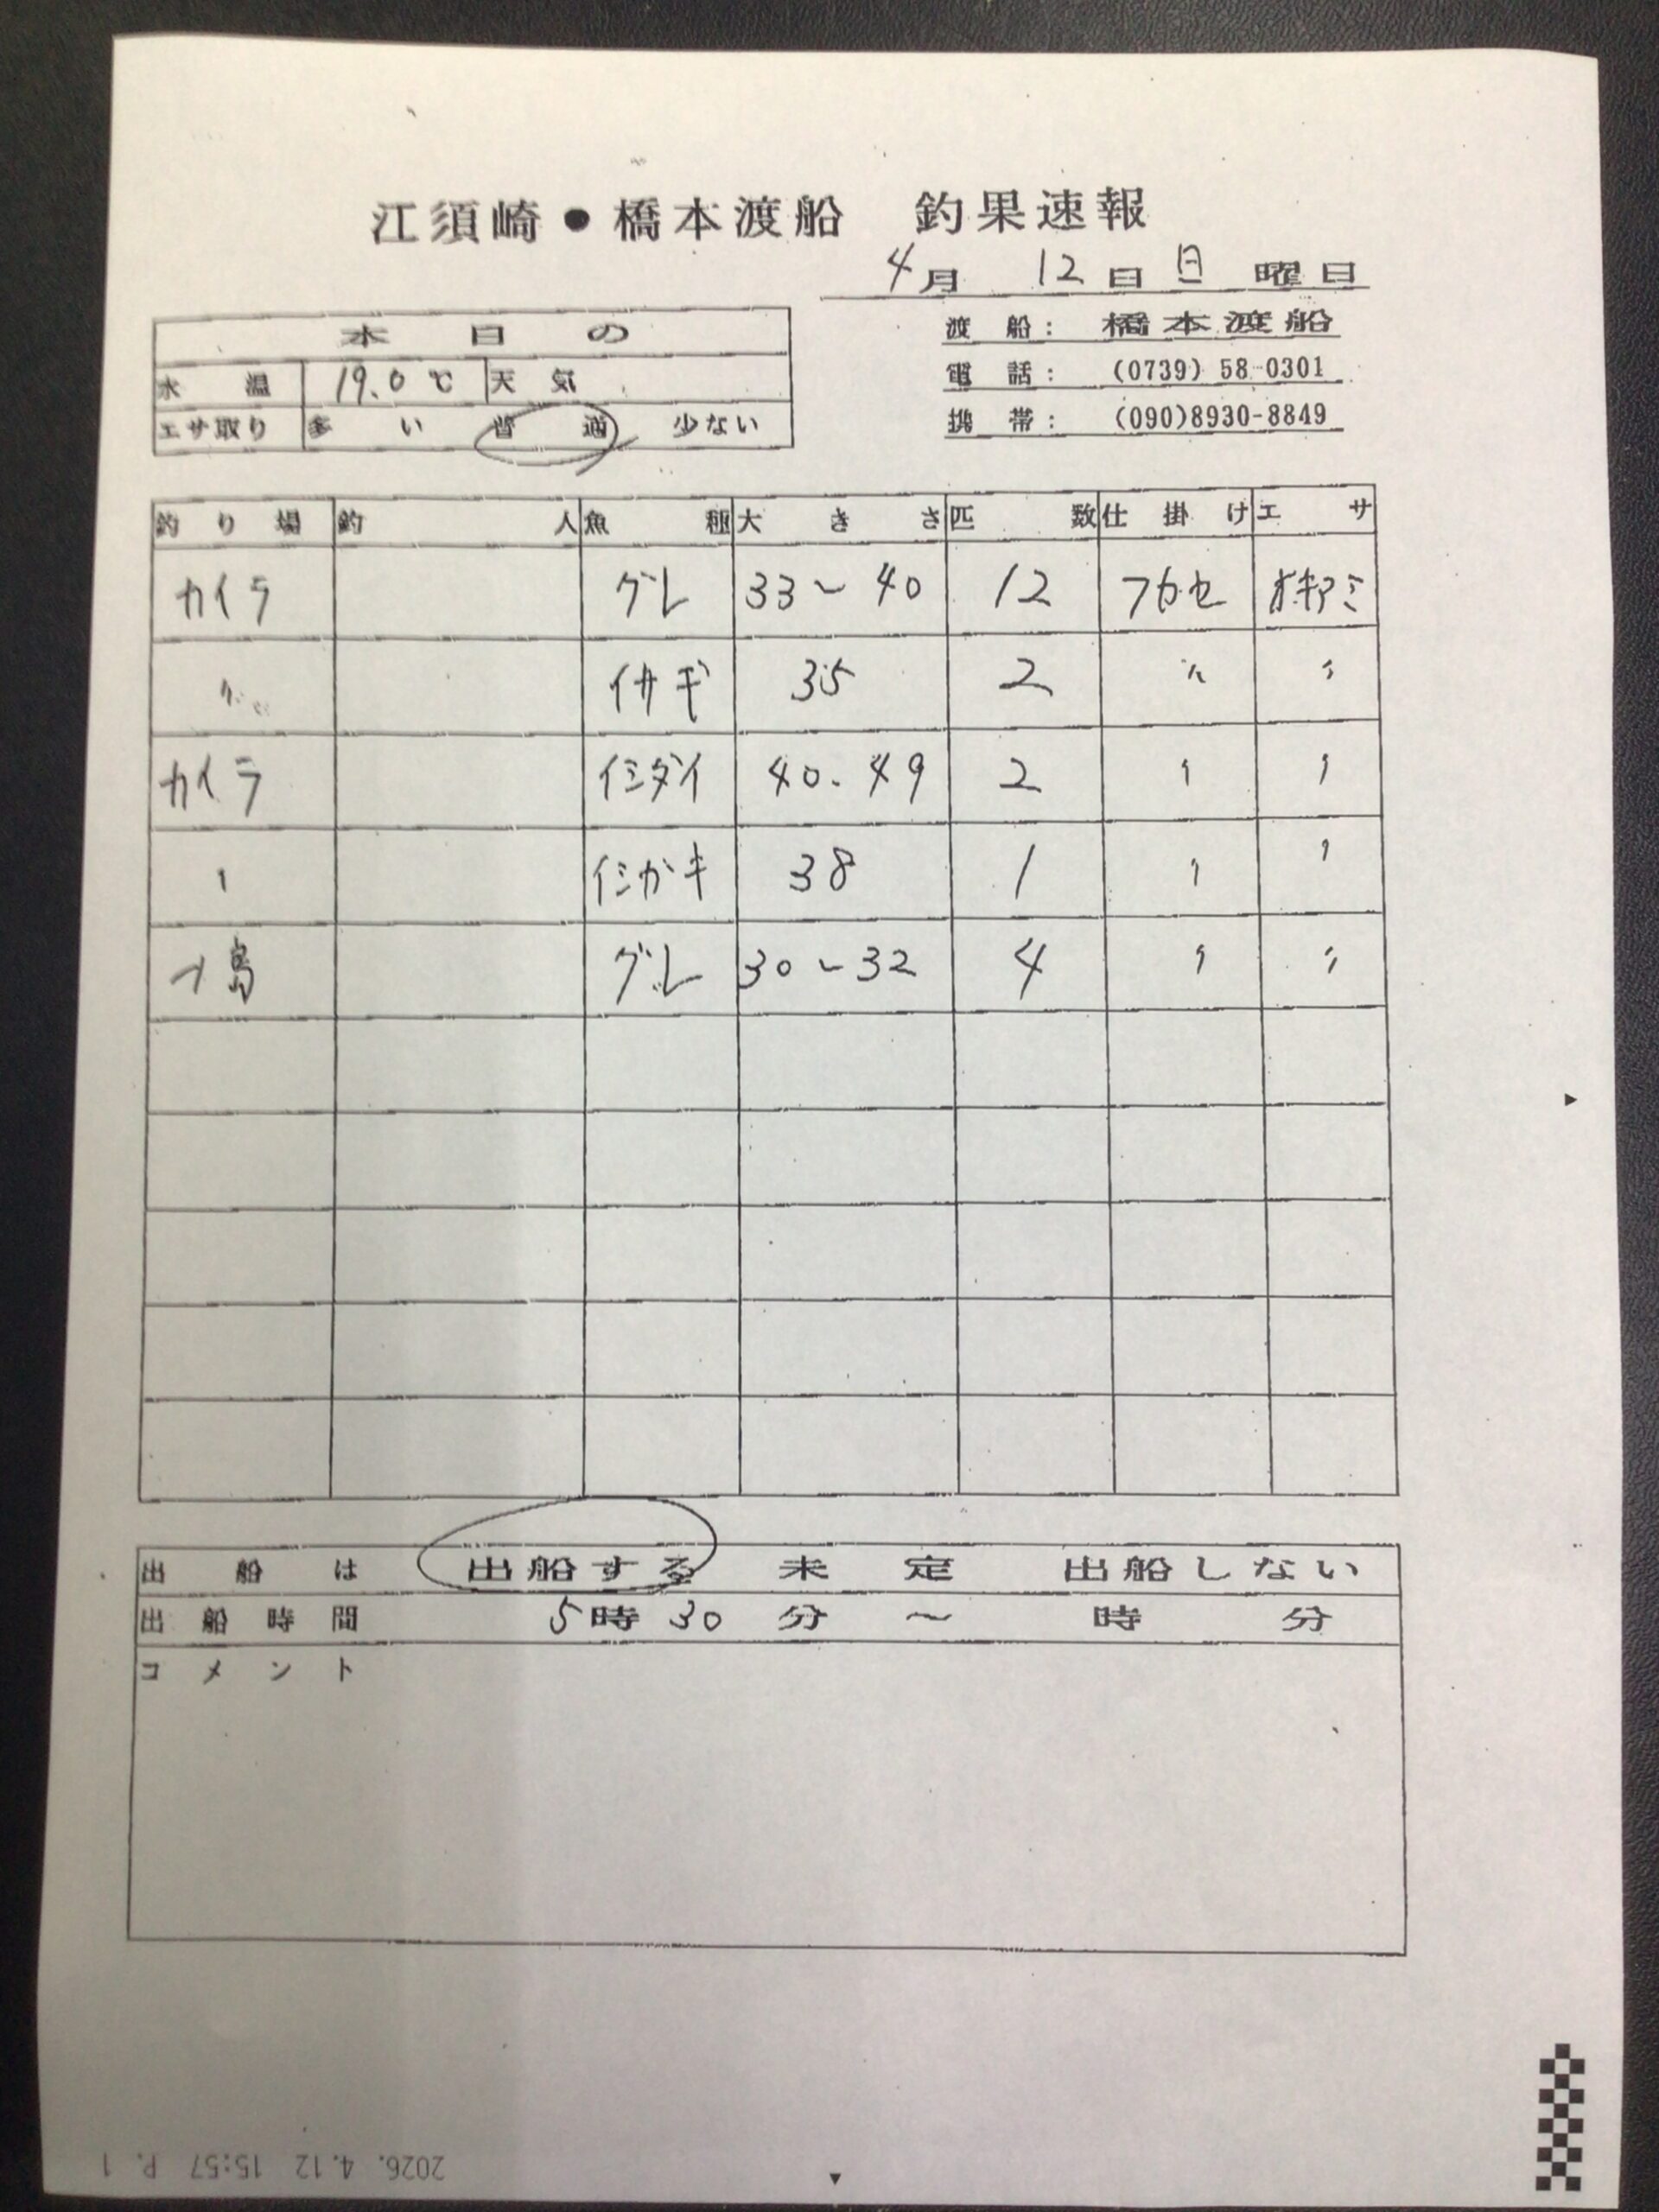 江須崎●橋本渡船 釣果速報
4月 12日 日 曜日
本日の
水温 19.0℃ 天気
エサ取り 多い 普通 少ない
渡船: 橋本渡船
電話: (0739) 58-0301
携帯: (090)8930-8849
釣り場 釣人 魚種 大きさ 匹数 仕掛け エサ
カイラ グレ 33〜40 12 フカセ オキアミ
〃 イサギ 35 2 〃 〃
カイラ イシダイ 40.49 2 〃 〃
〃 イシガキ 38 1 〃 〃
島 グレ 30〜32 4 〃 〃
出船は 出船する 未定 出船しない
出船時間 5時30分〜 時 分
コメント
2026. 4.12 15:57 P. 1